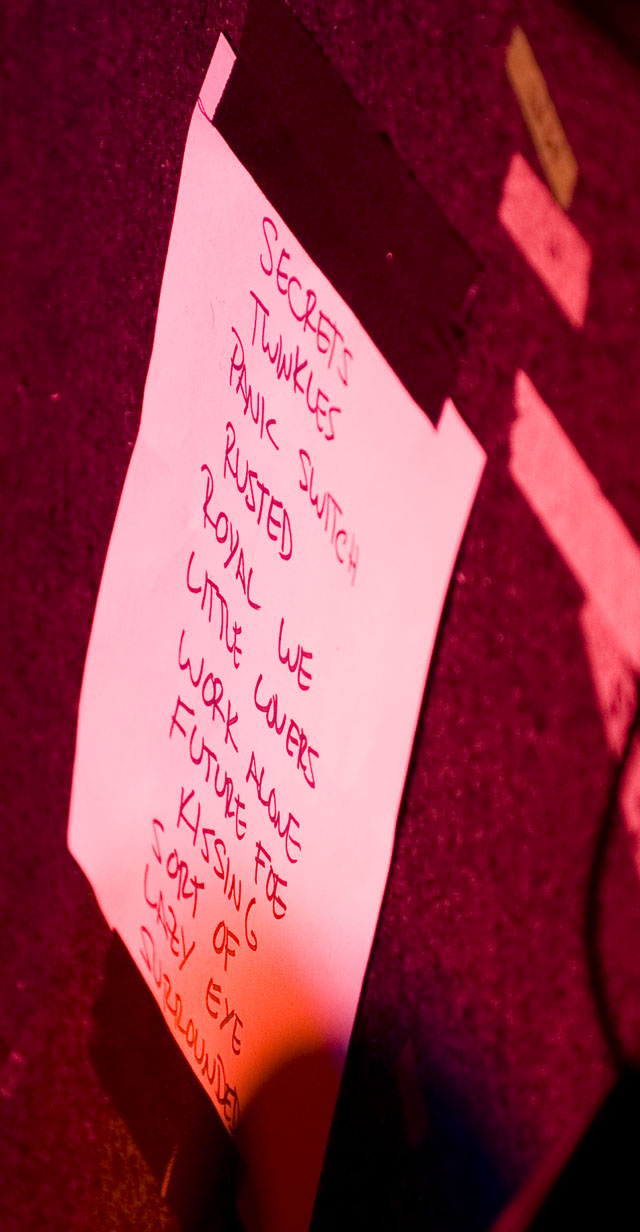 SECRETS
TWINKLES
PANIC SWITCH
RUSTED
ROYAL WE
LITTLE LOVERS
WORK ALONE
FUTURE FOE
KISSING
SORT OF
LAZEY EYE
SURROUNDED